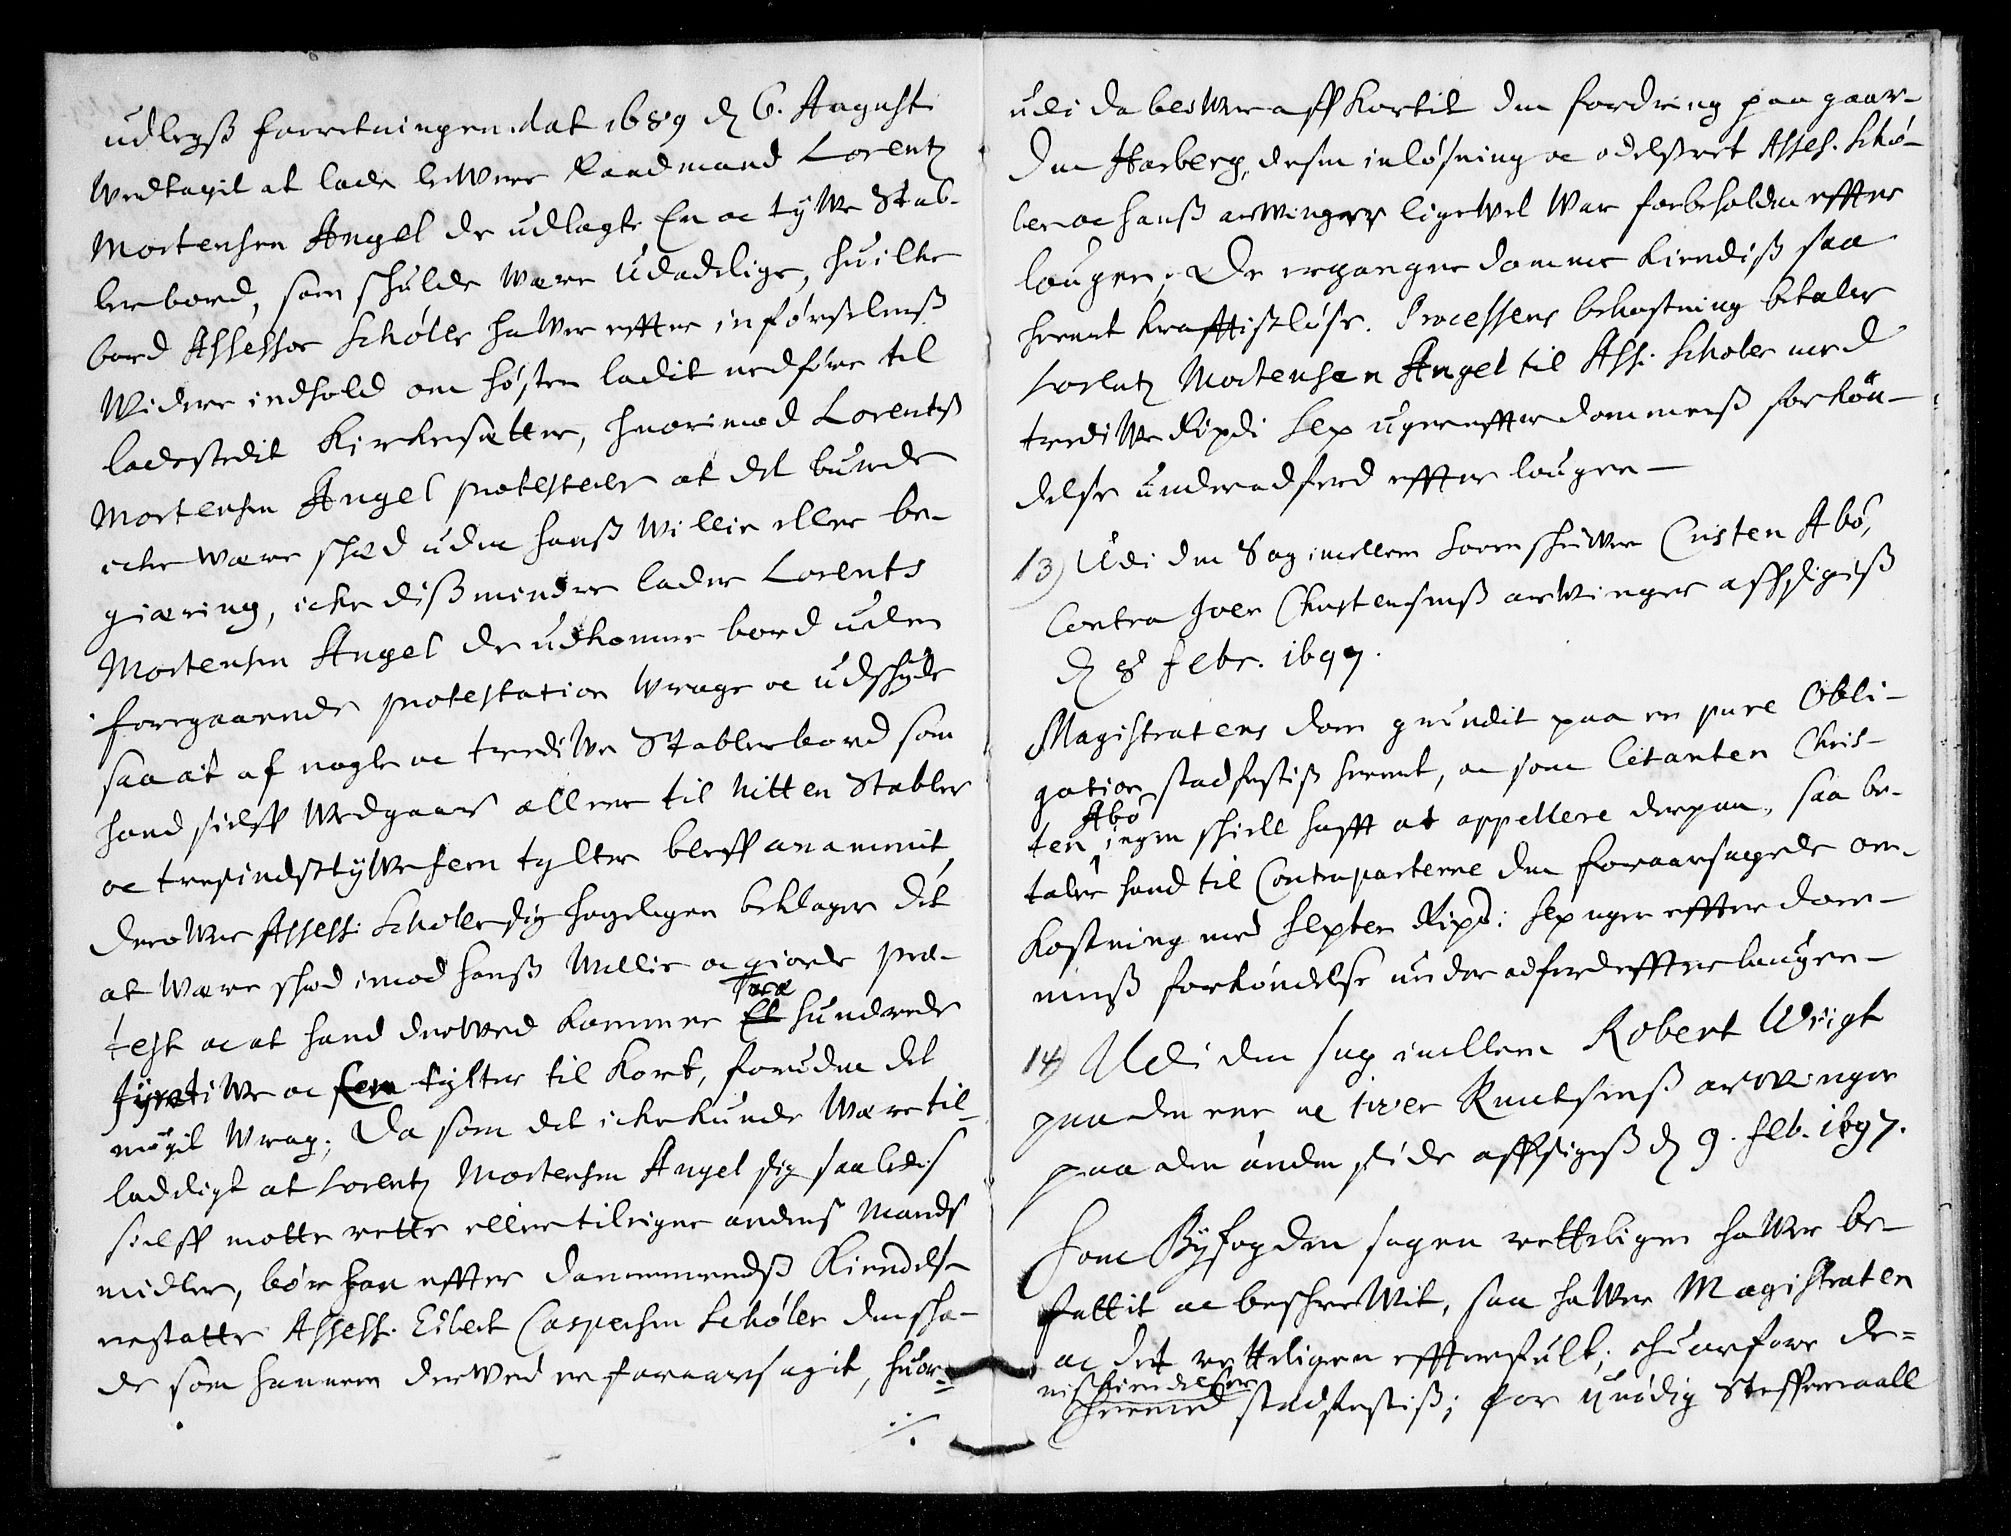 udlegß forretningen dat 1689 d 6. Augusti
Wedtagit at lade lewere Raadmand Lorentz
Mortensen Angel de udlagte En oc tyWe Stab-
lerbord, som schulde were Udadelige, huilke
bord Assessor Schøler haWer effter indførselens
Widere indhold om høsten ladit nedføre til
ladestedit Kirkesætter, huorimod Lorentß
Mortensen Angel protesterer at det burde
icke were scheed uden hanß Willie eller be-
giæring, icke dißmindre lader Lorents
Mortensen Angel de udkomne bord uden
foregaaende protestation Wrage oc udschyde
saa at af nogle oc trediWe Stablerbord som
hand sielff Wedgaar alleene til Nitten Stabler
oc tresindstyWefem tylter bleff anammit,
deroWer Assess: Schøler sig høyeligen beklager dit
at Were scheed imod hanß Willie oc giorde pro-
test oc at hand derWed kommer Toe hundrede
fyretiWe oc fem tylter til kort, foruden det
møgit Wrag; Da som det icke kunde Were til-
ladeligt at Lorentz Mortensen Angel sig saaledes
sielff motte rette eller tileigne andens Mands
midler, bør han effter dannemendß Kiendelse
erstatte Assess. Eilert Caspersen Schøler den scha-
de som hannem derwed er foraarsagit, huor-
./.
udi da besWer affkortit den fordring paa gaar-
den Harberg, desen inløsning oc odelsret Asses. Schø-
ler oc hanß arwinger ligewel War forbeholden effter
lougen. De ergangne domme kiendiß saa
hermet krafftisløse. Processens bekostning betaler
Lorentz Mortensen Angel til Ass. Schøler med
trediWe Rixdr Sex uger effter dommenß forkön-
delse under adferd effter lougen-
13) Udi den Sag imellem Sorenschriwer Cristen Abo,
Contra Joen Christensenß arwinger affsigiß
d 8 Febr. 1697.
Magistratens dom grundit paa en pure Obli-
gation stadfestiß hermet, oc som Citanten Chris-
ten Abo ingen schiell hafft at appellere derpaa, saa be-
taler hand til Contraparterne den foraarsagede om-
kostning med Sexten Rixd: sex uger effter dom-
menß forkøndelse under adferd effter laugen-
14) Udi den sag imellem Robert Wrigt
paa den ene oc Iver Knutsenß arwinger
paa den anden side affsigeß d 9. Feb. 1697.
Som Byfogden sagen rettelligen haWer be-
fattit oc beschreWit, saa haWer Magistraten
oc det retteligen effterfult; thi warfore de-
niß kiendelser
hermed stadfestiß; for unødig Steffnemaall